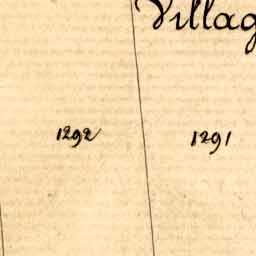 Villag
1292 1291